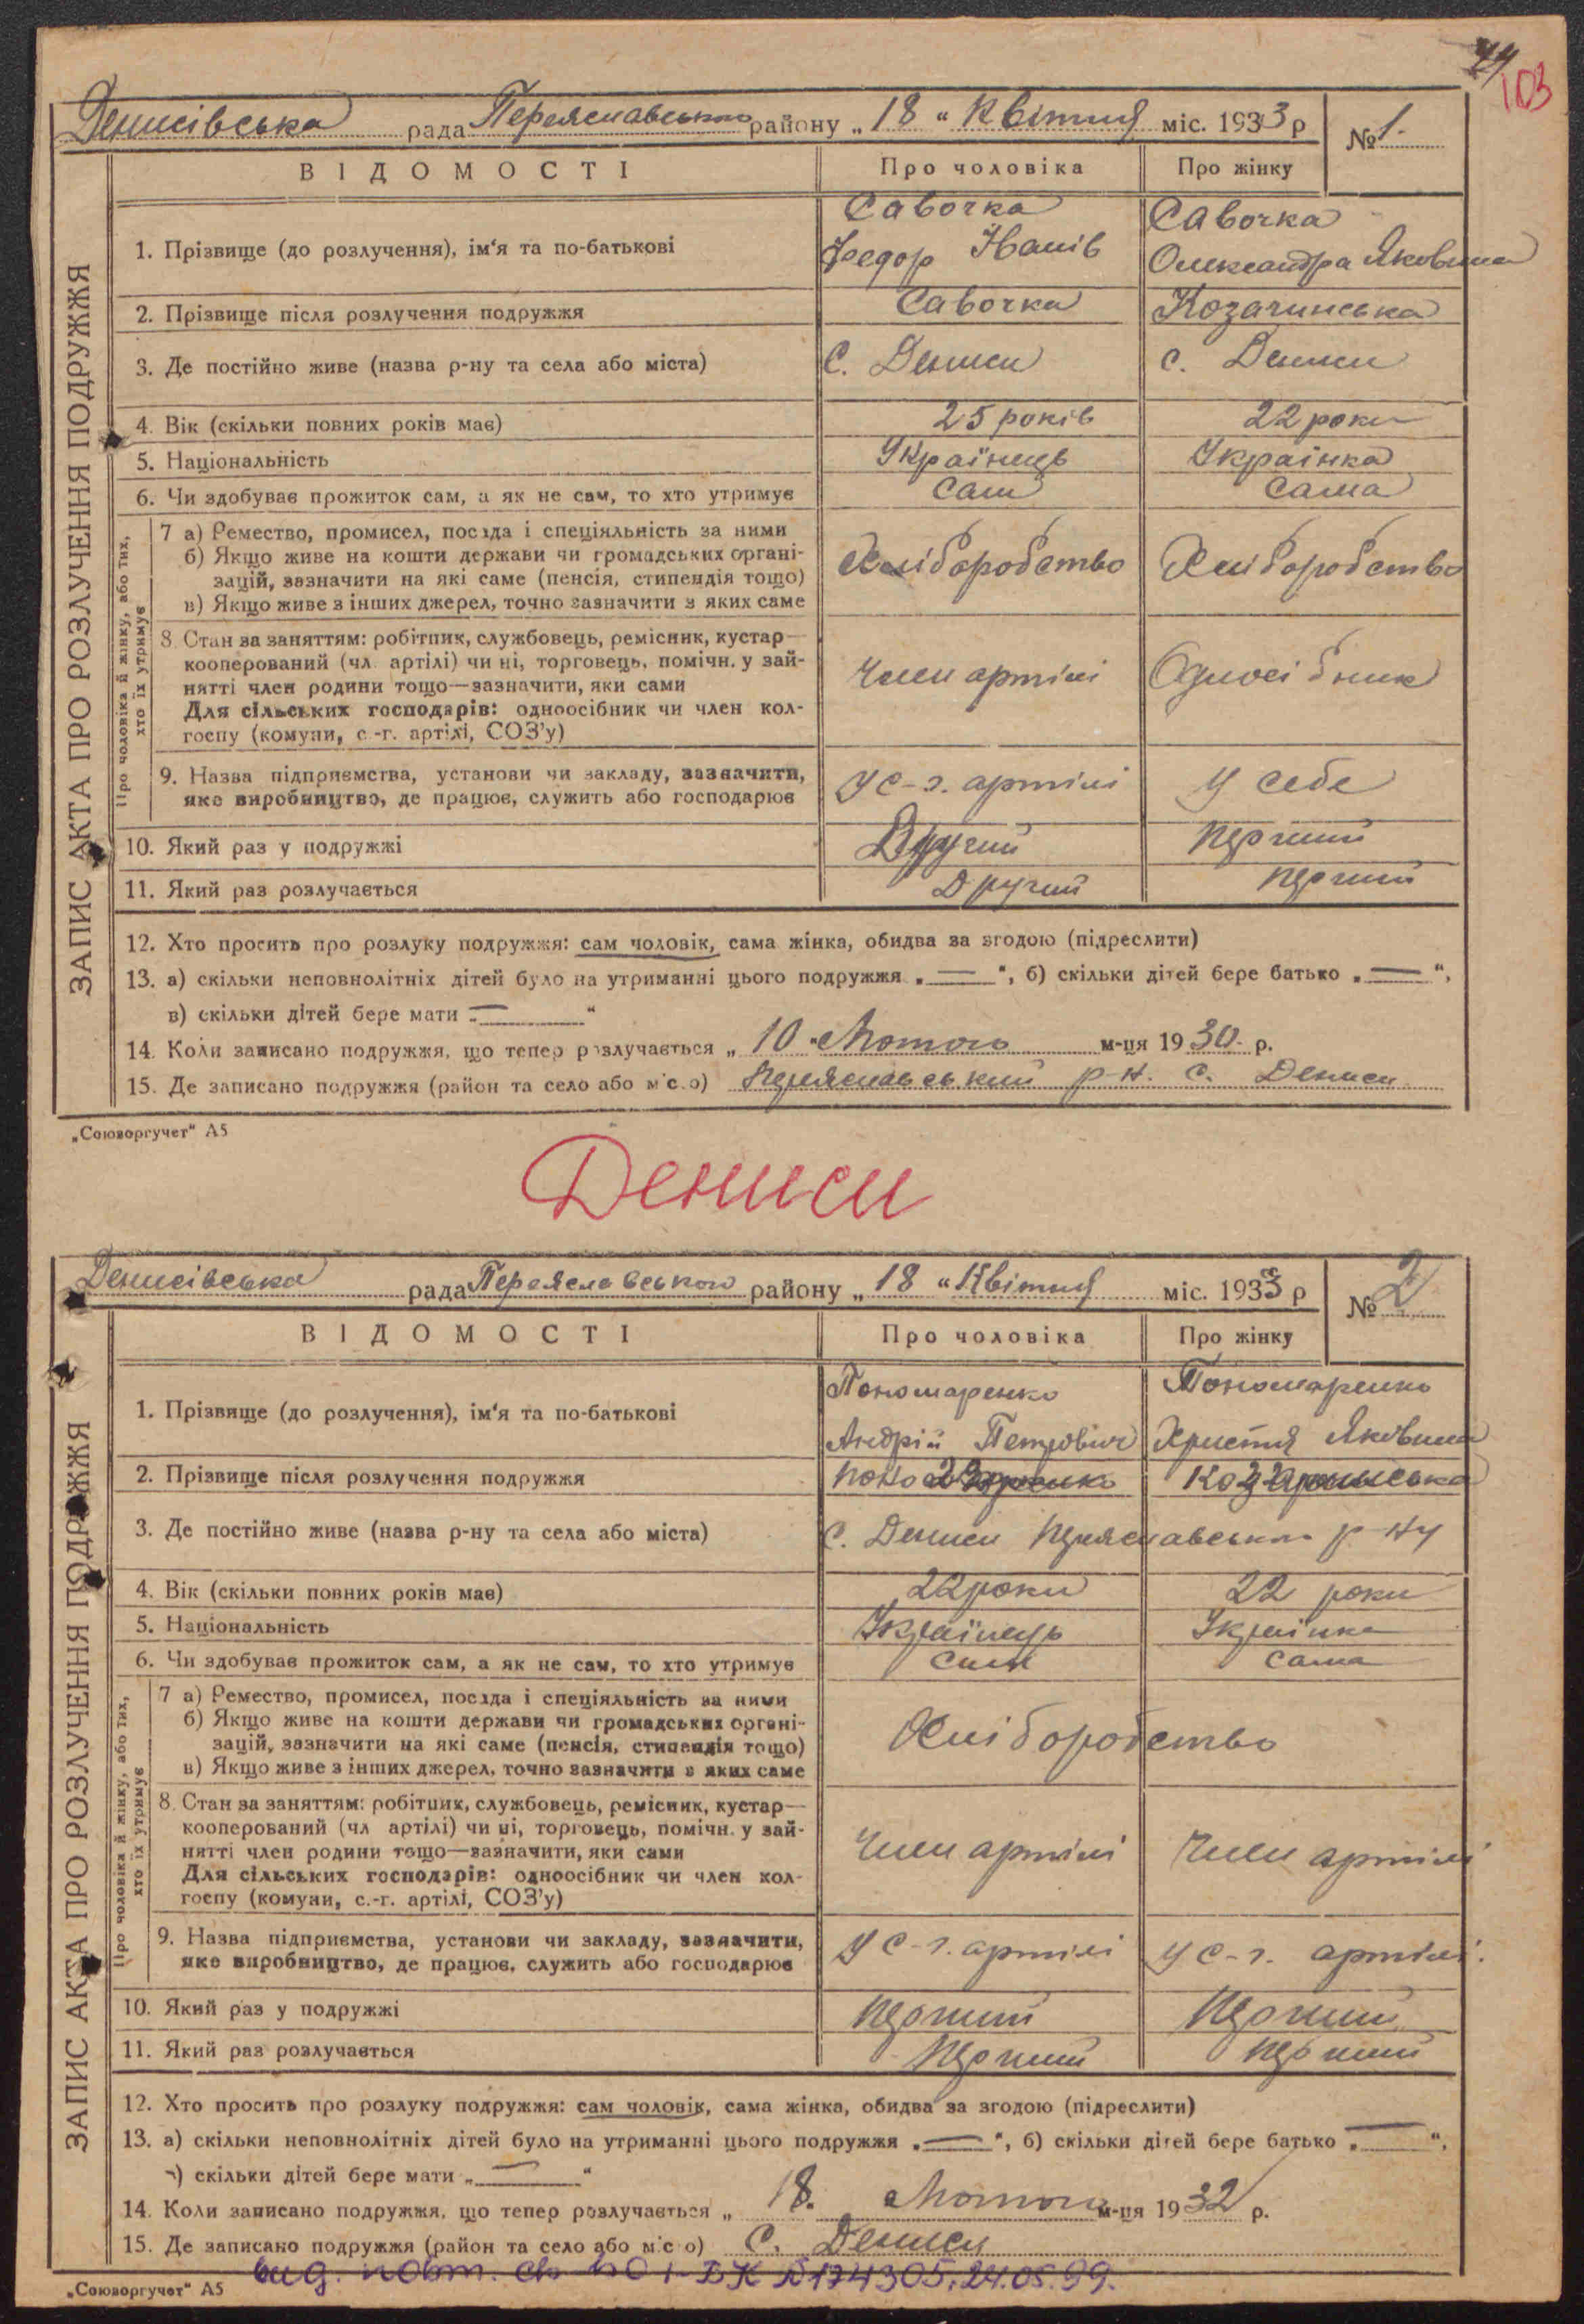 103
Денисівська рада Переяславського району „18“ Квітня міс. 1933 р №1.
ВІДОМОСТІ Про чоловіка Про жінку
ЗАПИС АКТА ПРО РОЗЛУЧЕННЯ ПОДРУЖЖЯ
Савочка Савочка
1. Прізвище (до розлучення), ім'я та по-батькові Федор Іванів Олександра Яковина
2. Прізвище після розлучення подружжя Савочка Козачинська
3. Де постійно живе (назва р-ну та села або міста) С. Дениси с. Дениси
4. Вік (скільки повних років має) 25 років 22 роки
5. Національність Українець Українка
6. Чи здобуває прожиток сам, а як не сам, то хто утримує Сам Сама
Про чоловіка й жінку, або тих, хто їх утримує
7 а) Ремество, промисел, посада і спеціяльність за ними
б) Якщо живе на кошти держави чи громадських органі-
зацій, зазначити на які саме (пенсія, стипендія тощо) Хліборобство Хліборобство
в) Якщо живе з інших джерел, точно зазначити з яких саме
8. Стан за заняттям: робітник, службовець, ремісник, кустар—
кооперований (чл. артілі) чи ні, торговець, помічн. у зай-
нятті член родини тощо—зазначити, яки сами Член артілі Одноосібник
Для сільських господарів: одноосібник чи член кол-
госпу (комуни, с.-г. артілі, СОЗ'у)
9. Назва підприємства, установи чи закладу, зазначити,
яке виробництво, де працює, служить або господарює У с-г. артілі У себе
10. Який раз у подружжі Другий Перший
11. Який раз розлучається Другий Перший
12. Хто просить про розлуку подружжя: сам чоловік, сама жінка, обидва за згодою (підреслити)
13. а) скільки неповнолітніх дітей було на утриманні цього подружжя „—“, б) скільки дітей бере батько „—“,
в) скільки дітей бере мати „—“
14. Коли записано подружжя, що тепер розлучається „10“ Лютого м-ця 1930. р.
15. Де записано подружжя (район та село або місто) Переяславський р-н. с. Дениси
„Союзоргучет“ А5
Дениси
Денисівська рада Переяславського району „18“ Квітня міс. 1933 р №2
ВІДОМОСТІ Про чоловіка Про жінку
ЗАПИС АКТА ПРО РОЗЛУЧЕННЯ ПОДРУЖЖЯ
Пономаренко Пономаренко
1. Прізвище (до розлучення), ім'я та по-батькові Андрій Петрович Христя Яковина
2. Прізвище після розлучення подружжя Пономаренко Козачинська
3. Де постійно живе (назва р-ну та села або міста) С. Дениси Переяславського р-ну
4. Вік (скільки повних років має) 22 роки 22 роки
5. Національність Українець Українка
6. Чи здобуває прожиток сам, а як не сам, то хто утримує Сам Сама
Про чоловіка й жінку, або тих, хто їх утримує
7 а) Ремество, промисел, посада і спеціяльність за ними
б) Якщо живе на кошти держави чи громадських органі-
зацій, зазначити на які саме (пенсія, стипендія тощо) Хліборобство
в) Якщо живе з інших джерел, точно зазначити з яких саме
8. Стан за заняттям: робітник, службовець, ремісник, кустар—
кооперований (чл артілі) чи ні, торговець, помічн. у зай-
нятті член родини тощо—зазначити, яки сами Член артілі Член артілі
Для сільських господарів: одноосібник чи член кол-
госпу (комуни, с.-г. артілі, СОЗ'у)
9. Назва підприємства, установи чи закладу, зазначити,
яке виробництво, де працює, служить або господарює У с-г. артілі У с-г. артілі.
10. Який раз у подружжі Перший Перший
11. Який раз розлучається Перший Перший
12. Хто просить про розлуку подружжя: сам чоловік, сама жінка, обидва за згодою (підреслити)
13. а) скільки неповнолітніх дітей було на утриманні цього подружжя „—“, б) скільки дітей бере батько „—“,
в) скільки дітей бере мати „—“
14. Коли записано подружжя, що тепер розлучається „ 18. Лютого м-ця 1932 р.
15. Де записано подружжя (район та село або місто) С. Дениси
вид. повт. св-во І-БК №174305, 24.05.99.
„Союзоргучет“ А5